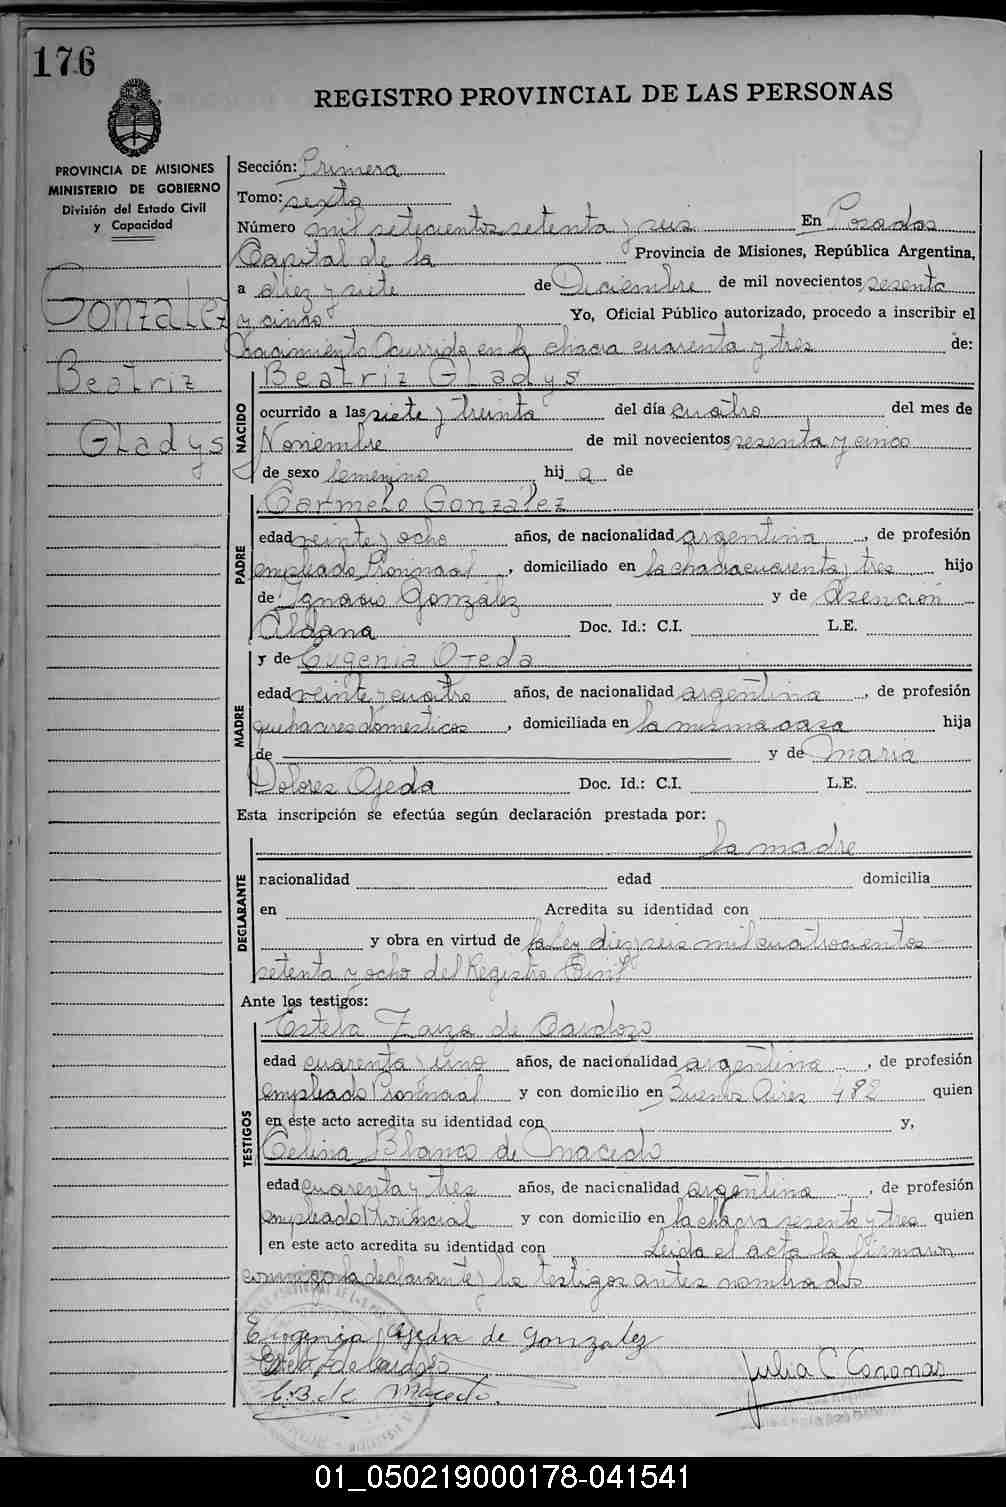 176
REGISTRO PROVINCIAL DE LAS PERSONAS
PROVINCIA DE MISIONES
MINISTERIO DE GOBIERNO
División del Estado Civil
y Capacidad
Gonzalez
Beatriz
Gladys
Sección: Primera
Tomo: sexto
Número mil setecientos setenta y seis En Posadas
Capital de la Provincia de Misiones, República Argentina,
a diez y siete de Diciembre de mil novecientos sesenta
y cinco Yo, Oficial Público autorizado, procedo a inscribir el
Nacimiento Ocurrido en la chacra cuarenta y tres de:
NACIDO
Beatriz Gladys
ocurrido a las siete y treinta del día cuatro del mes de
Noviembre de mil novecientos sesenta y cinco
de sexo femenino hij a de
PADRE
Carmelo Gonzalez
edad veinte y ocho años, de nacionalidad argentina, de profesión
empleado Provincial, domiciliado en la chacra cuarenta y tres hijo
de Ignacio González y de Asención
Aldana Doc. Id.: C.I. L.E.
MADRE
y de Eugenia Ojeda
edad veinte y cuatro años, de nacionalidad argentina, de profesión
quehaceres domesticos, domiciliada en la misma casa hija
de y de Maria
Dolores Ojeda Doc. Id.: C.I. L.E.
Esta inscripción se efectúa según declaración prestada por:
DECLARANTE
la madre
nacionalidad edad domicilia
en Acredita su identidad con
y obra en virtud de la ley diez y seis mil cuatrocientos
setenta y ocho del Registro Civil
Ante los testigos:
TESTIGOS
Estela de Cardozo
edad cuarenta y uno años, de nacionalidad argentina, de profesión
empleado Provincial y con domicilio en Buenos Aires 482 quien
en este acto acredita su identidad con y,
Celina Blanco de Macedo
edad cuarenta y tres años, de nacionalidad argentina, de profesión
empleado Provincial y con domicilio en la chacra sesenta y tres quien
en este acto acredita su identidad con Leida el acta la firmaron
conmigo la declarante y los testigos antes nombrados
Eugenia Ojeda de Gonzalez
C.B. de Macedo.
Julia C Coronas
01_050219000178-041541